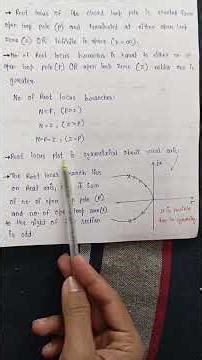 → Root locus of the closed loop pole is started from
open loop pole (P) and terminated at either open loop
zero (Z) OR infinite in space (k=∞).
→ No of Root locus branches is equal to either no of
open loop pole (P) OR open loop zero (Z) which one is
greater.
No of Root locus branches:
N=P, (P>Z)
N=Z, (Z>P)
N=P=Z, (Z=P)
→ Root locus plot is symmetrical about real axis.
→ The Root locus branch lies
on Real axis, if sum
of no of open loop pole (P)
and no of open loop zero(Z)
to the right of section
is odd.
jω
It is possible
due to symmetry